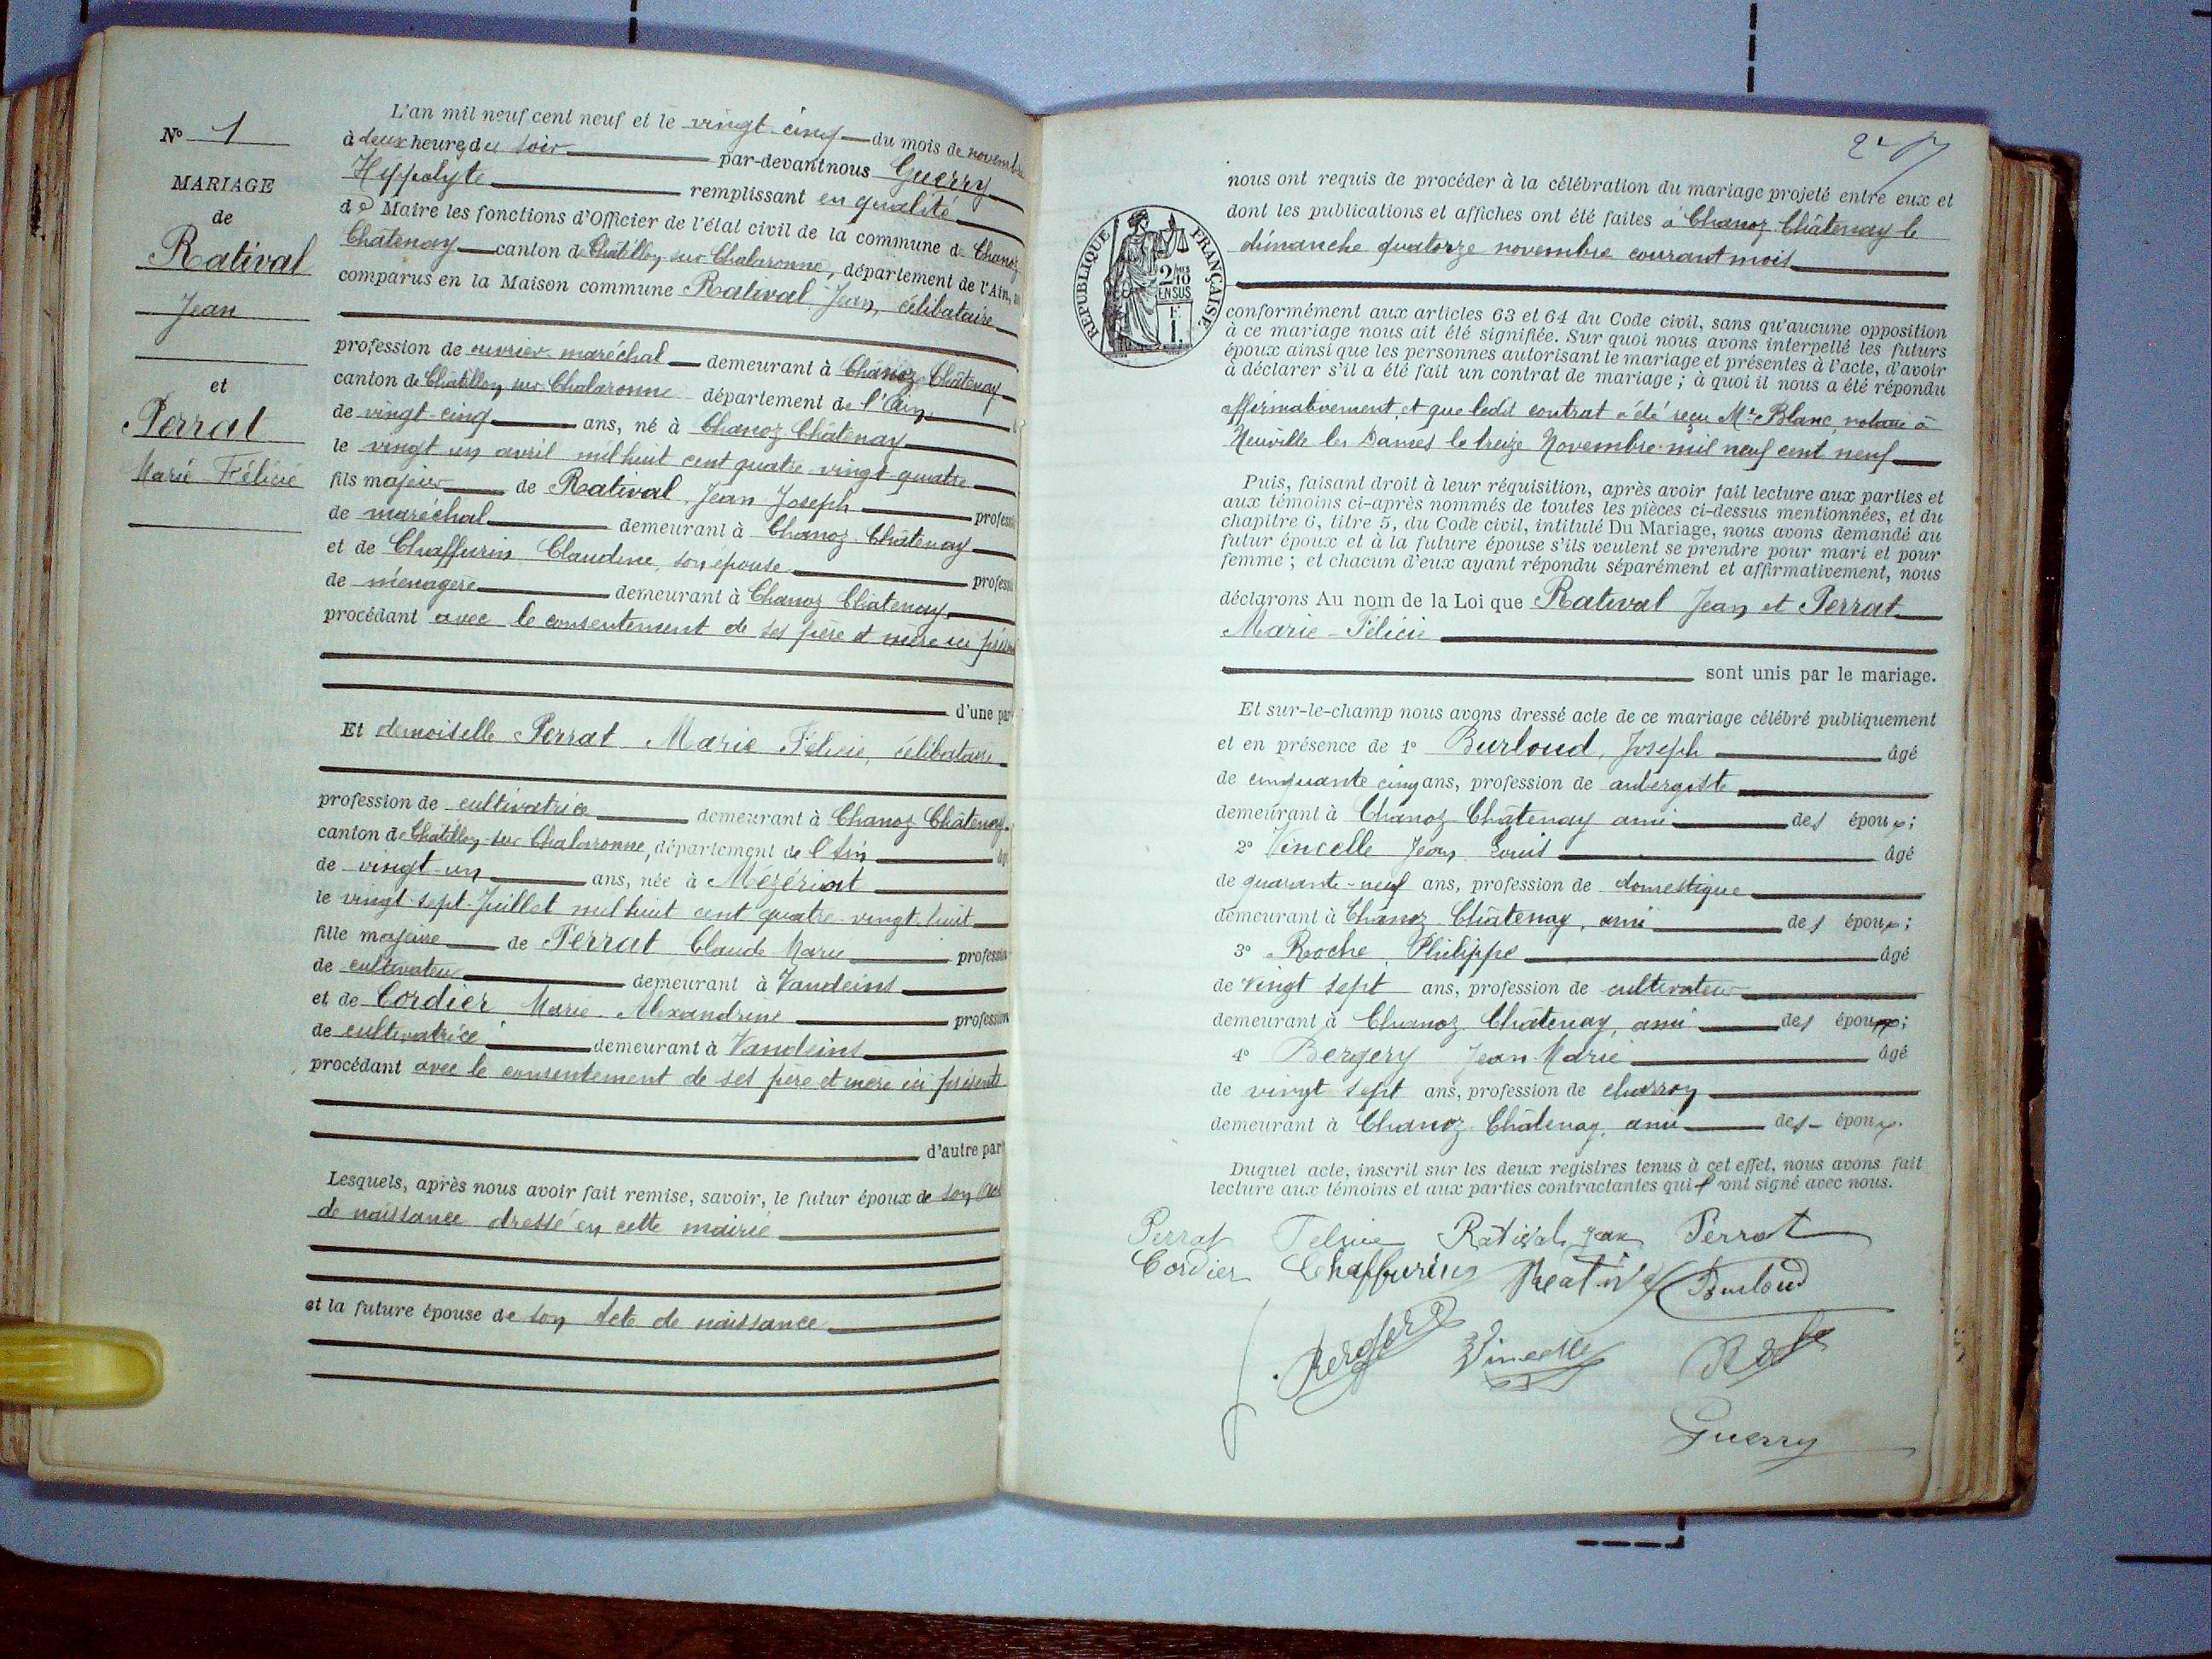 N° 1
MARIAGE
de
Rativat
Jean
et
Perrat
Marie Félicie
L'an mil neuf cent neuf et le vingt-cinq du mois de novembre
à deux heures du soir par-devant nous Guerry
Hippolyte remplissant en qualité
de Maire les fonctions d'Officier de l'état civil de la commune de Chanoz
Châtenay canton de Châtillon-sur-Chalaronne, département de l'Ain,
comparus en la Maison commune Rativat Jean, célibataire
profession de ouvrier maréchal demeurant à Chanoz-Châtenay
canton de Châtillon sur Chalaronne département de l'Ain
de vingt-cinq ans, né à Chanoz Châtenay
le vingt un avril mil huit cent quatre-vingt-quatre
fils majeur de Rativat Jean Joseph profess
de maréchal demeurant à Chanoz-Châtenay
et de Chaffurin Claudine, son épouse profess
de ménagère demeurant à Chanoz Châtenay
procédant avec le consentement de ses père et mère ici présents
d'une part
Et demoiselle Perrat Marie Félicie, célibataire
profession de cultivatrice demeurant à Chanoz Châtenay
canton de Châtillon-sur Chalaronne, département de l'Ain âgé
de vingt-un ans, née à Mézériat
le vingt-sept Juillet mil huit cent quatre-vingt-huit
fille majeure de Perrat Claude Marie profession
de cultivateur demeurant à Vandeins
et de Cordier Marie-Alexandrine profession
de cultivatrice demeurant à Vandeins
procédant avec le consentement de ses père et mère ici présents
d'autre part
Lesquels, après nous avoir fait remise, savoir, le futur époux de son acte
de naissance dressé en cette mairie
et la future épouse de son acte de naissance
RÉPUBLIQUE FRANÇAISE
2/10
EN SUS
F.
1.
nous ont requis de procéder à la célébration du mariage projeté entre eux et
dont les publications et affiches ont été faites à Chanoz-Châtenay le
dimanche quatorze novembre courant mois
conformément aux articles 63 et 64 du Code civil, sans qu'aucune opposition
à ce mariage nous ait été signifiée. Sur quoi nous avons interpellé les futurs
époux ainsi que les personnes autorisant le mariage et présentes à l'acte, d'avoir
à déclarer s'il a été fait un contrat de mariage ; à quoi il nous a été répondu
affirmativement, et que ledit contrat a été reçu Me Blanc, notaire à
Neuville les Dames le treize Novembre mil neuf cent neuf
Puis, faisant droit à leur réquisition, après avoir fait lecture aux parties et
aux témoins ci-après nommés de toutes les pièces ci-dessus mentionnées, et du
chapitre 6, titre 5, du Code civil, intitulé Du Mariage, nous avons demandé au
futur époux et à la future épouse s'ils veulent se prendre pour mari et pour
femme ; et chacun d'eux ayant répondu séparément et affirmativement, nous
déclarons Au nom de la Loi que Rativat Jean et Perrat
Marie-Félicie
sont unis par le mariage.
Et sur-le-champ nous avons dressé acte de ce mariage célébré publiquement
et en présence de 1° Burloud, Joseph âgé
de cinquante cinq ans, profession de aubergiste
demeurant à Chanoz-Châtenay ami des époux ;
2° Vincelle Jean Louis âgé
de quarante-neuf ans, profession de domestique
demeurant à Chanoz Châtenay, ami des époux ;
3° Roche, Philippe âgé
de vingt sept ans, profession de cultivateur
demeurant à Chanoz Châtenay, ami des époux ;
4° Bergery Jean-Marie âgé
de vingt sept ans, profession de charron
demeurant à Chanoz-Châtenay, ami des époux.
Duquel acte, inscrit sur les deux registres tenus à cet effet, nous avons fait
lecture aux témoins et aux parties contractantes qui ont signé avec nous.
Perrat Félicie Rativat Jean Perrat
Cordier Chaffurin Burloud
Vincelle
Guerry